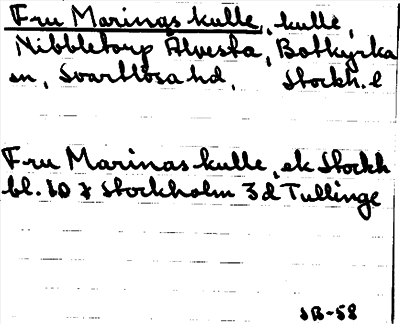 Fru Marinas kulle, kulle,
Nibbletorp Älvesta, Botkyrka
sn, Svartlösa hd, Stockh. l
Fru Marinas kulle, ek Stockh
bl. 10 Stockholm 3d Tullinge
JB-58